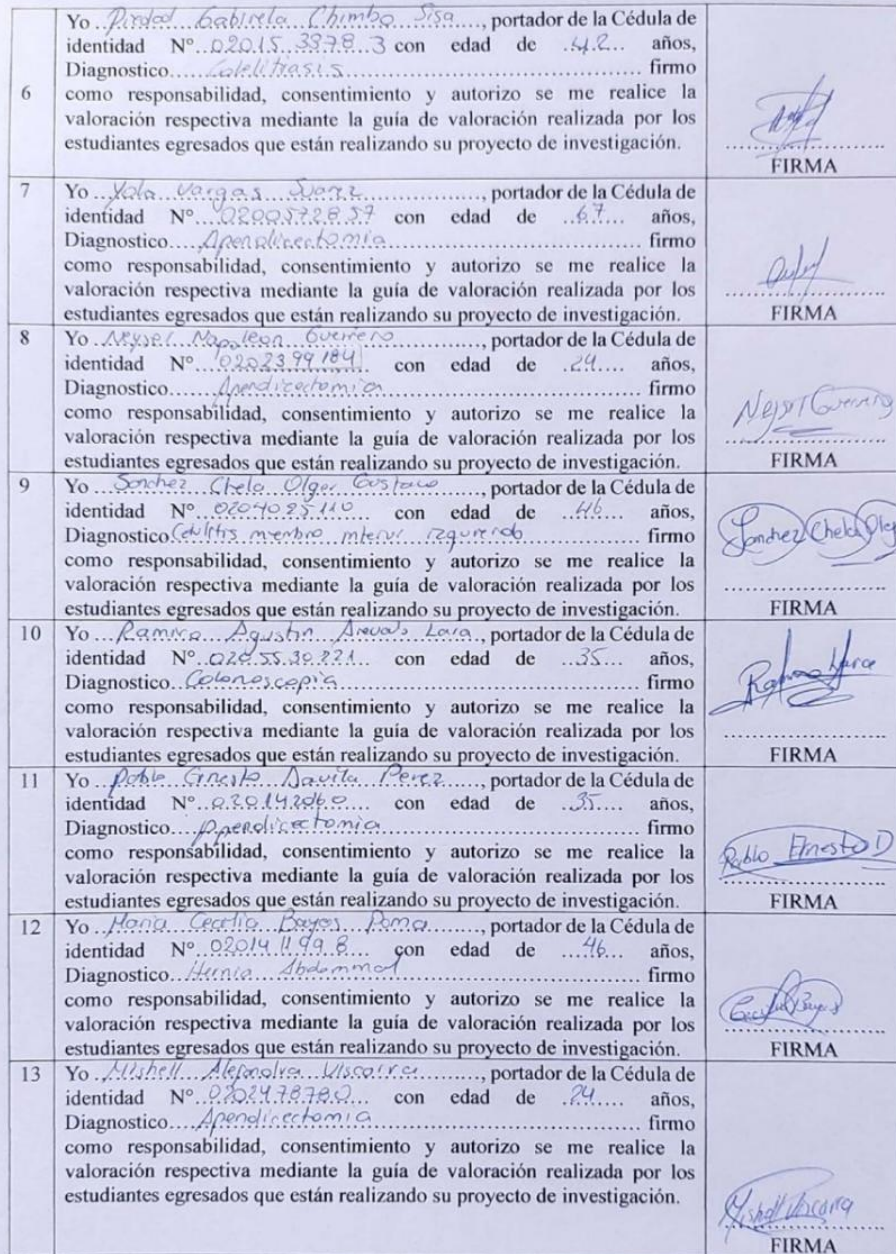 6
Yo Piedad Gabirela Chimbo Sisa, portador de la Cédula de
identidad Nº 02015 3378 3 con edad de 42 años,
Diagnostico Colelitiasis firmo
como responsabilidad, consentimiento y autorizo se me realice la
valoración respectiva mediante la guía de valoración realizada por los
estudiantes egresados que están realizando su proyecto de investigación.
FIRMA
7
Yo Yola Vargas Suarez, portador de la Cédula de
identidad Nº 0200572857 con edad de 67 años,
Diagnostico Apendicectomia firmo
como responsabilidad, consentimiento y autorizo se me realice la
valoración respectiva mediante la guía de valoración realizada por los
estudiantes egresados que están realizando su proyecto de investigación.
FIRMA
8
Yo Neyser Napoleon Guerrero, portador de la Cédula de
identidad Nº 0202399184 con edad de 24 años,
Diagnostico Apendicectomia firmo
como responsabilidad, consentimiento y autorizo se me realice la
valoración respectiva mediante la guía de valoración realizada por los
estudiantes egresados que están realizando su proyecto de investigación.
Neyser Guerrero
FIRMA
9
Yo Sanchez Chela Olger Gustavo, portador de la Cédula de
identidad Nº 0204025110 con edad de 46 años,
Diagnostico Celulitis miembro firmo
como responsabilidad, consentimiento y autorizo se me realice la
valoración respectiva mediante la guía de valoración realizada por los
estudiantes egresados que están realizando su proyecto de investigación.
Sanchez Chela Olge
FIRMA
10
Yo Ramiro Agustin Arevalo Lara, portador de la Cédula de
identidad Nº 020.55.30.221 con edad de 35 años,
Diagnostico Colonoscopia firmo
como responsabilidad, consentimiento y autorizo se me realice la
valoración respectiva mediante la guía de valoración realizada por los
estudiantes egresados que están realizando su proyecto de investigación.
FIRMA
11
Yo Pablo Ernesto Davila Perez, portador de la Cédula de
identidad Nº 0201422060 con edad de 35 años,
Diagnostico Apendicectomia firmo
como responsabilidad, consentimiento y autorizo se me realice la
valoración respectiva mediante la guía de valoración realizada por los
estudiantes egresados que están realizando su proyecto de investigación.
Pablo Ernesto D
FIRMA
12
Yo Maria Cecilia Bayas Poma, portador de la Cédula de
identidad Nº 02014 11 99 8 con edad de 46 años,
Diagnostico Hernia Abdominal firmo
como responsabilidad, consentimiento y autorizo se me realice la
valoración respectiva mediante la guía de valoración realizada por los
estudiantes egresados que están realizando su proyecto de investigación.
Cecilia Bayas
FIRMA
13
Yo Mishell Alejandra Viscarra, portador de la Cédula de
identidad Nº 0202478780 con edad de 24 años,
Diagnostico Apendicectomia firmo
como responsabilidad, consentimiento y autorizo se me realice la
valoración respectiva mediante la guía de valoración realizada por los
estudiantes egresados que están realizando su proyecto de investigación.
Mishell Viscarra
FIRMA